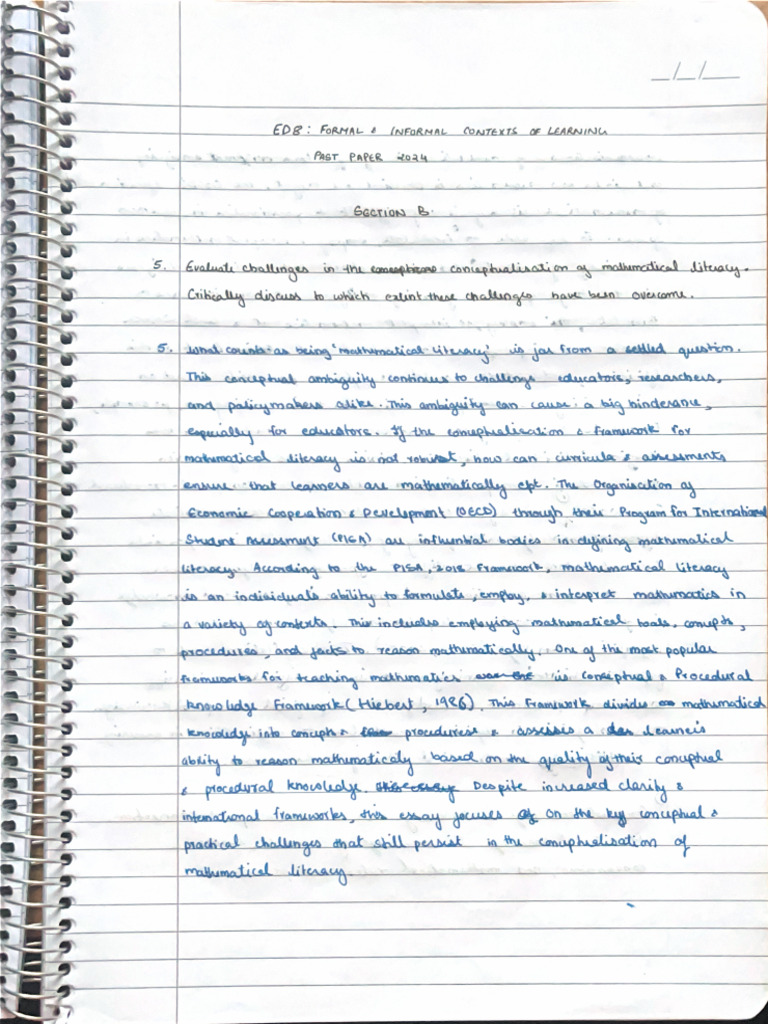 ED8: FORMAL & INFORMAL CONTEXTS OF LEARNING
PAST PAPER 2024
SECTION B.
5. Evaluate challenges in the conceptualisation of mathematical literacy.
Critically discuss to which extent these challenges have been overcome.
5. What counts as being 'mathematical literacy' is far from a settled question.
This conceptual ambiguity continues to challenge educators, researchers,
and policymakers alike. This ambiguity can cause a big hinderance,
especially for educators. If the conceptualisation & framework for
mathematical literacy is not robust, how can curricula & assessments
ensure that learners are mathematically ept. The Organisation of
Economic Cooperation & Development (OECD) through their Program for International
Student Assessment (PISA) are influential bodies in defining mathematical
literacy. According to the PISA, 2018 Framework, mathematical literacy
is an individual's ability to formulate, employ, & interpret mathematics in
a variety of contexts. This includes employing mathematical tools, concepts,
procedures, and facts to reason mathematically. One of the most popular
frameworks for teaching mathematics is Conceptual & Procedural
Knowledge Framework (Hiebert, 1986). This Framework divides mathematical
knowledge into concepts & procedures & assesses a learner's
ability to reason mathematically based on the quality of their conceptual
& procedural knowledge. Despite increased clarity &
international frameworks, this essay focuses on the key conceptual &
practical challenges that still persist in the conceptualisation of
mathematical literacy.